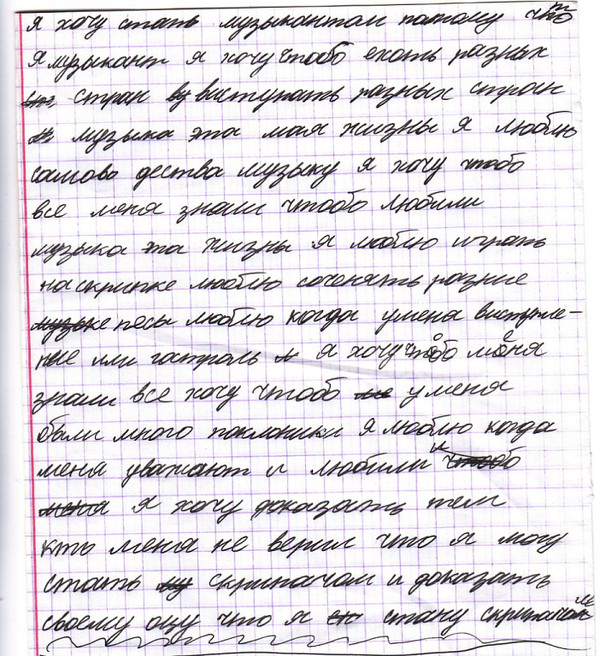 я хочу стать музыкантом потому что
я музыкант я хочу чтобо ехоть разных
стран выступать разных стран
музыка эта моя жизны я люблю
самово дества музыку я хочу чтобо
все меня знали чтобо любили
музыка эта жизны я люблю играть
на скрипке люблю соченять разние
песы люблю когда умена виступле-
ние или гастроль я хочу чтобо меня
знали все хочу чтобо уменя
были много поклоники я люблю когда
меня уважают и любили и
я хочу доказать тем
кть мена не верил что я могу
стать скрипачом и доказать
своему оцу что я стану скрипачом